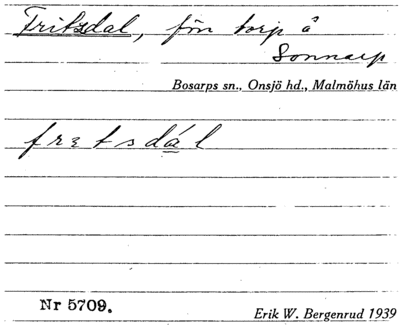 Fritsdal, förr torp å
Sonnarp
Bosarps sn., Onsjö hd., Malmöhus län
fretsdál
Nr 5709.
Erik W. Bergenrud 1939